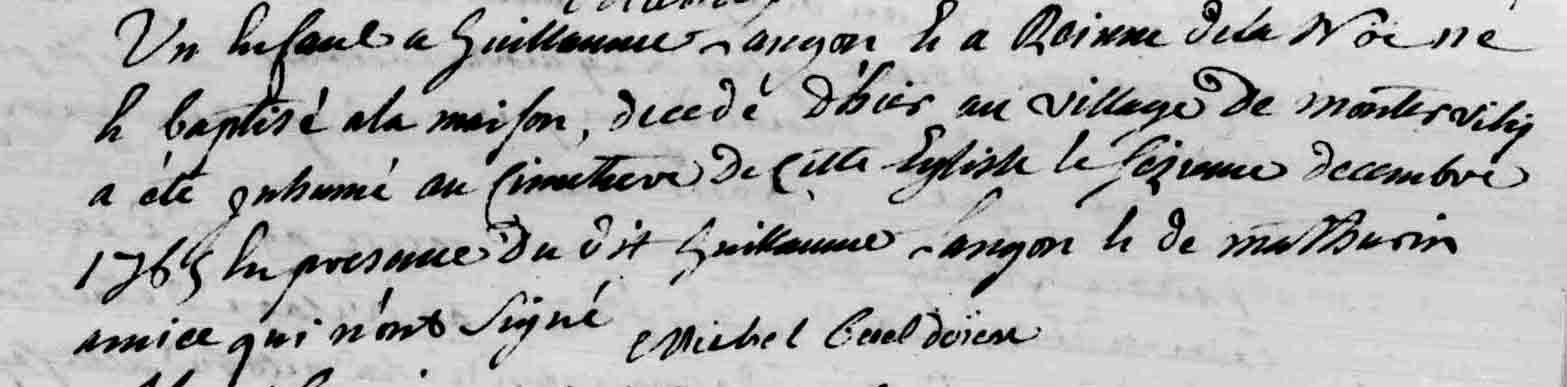 Un Enfant a Guillaume Langon & a Reinne de la Noë né
& baptisé a la maison, decedé d'hier au village de
a été inhumé au Cimetiere de Cette Eglise le seizieme decembre
1765 En presence du dit Guillaume Langon & de mathurin
amice qui n'ont Signé Michel doïen